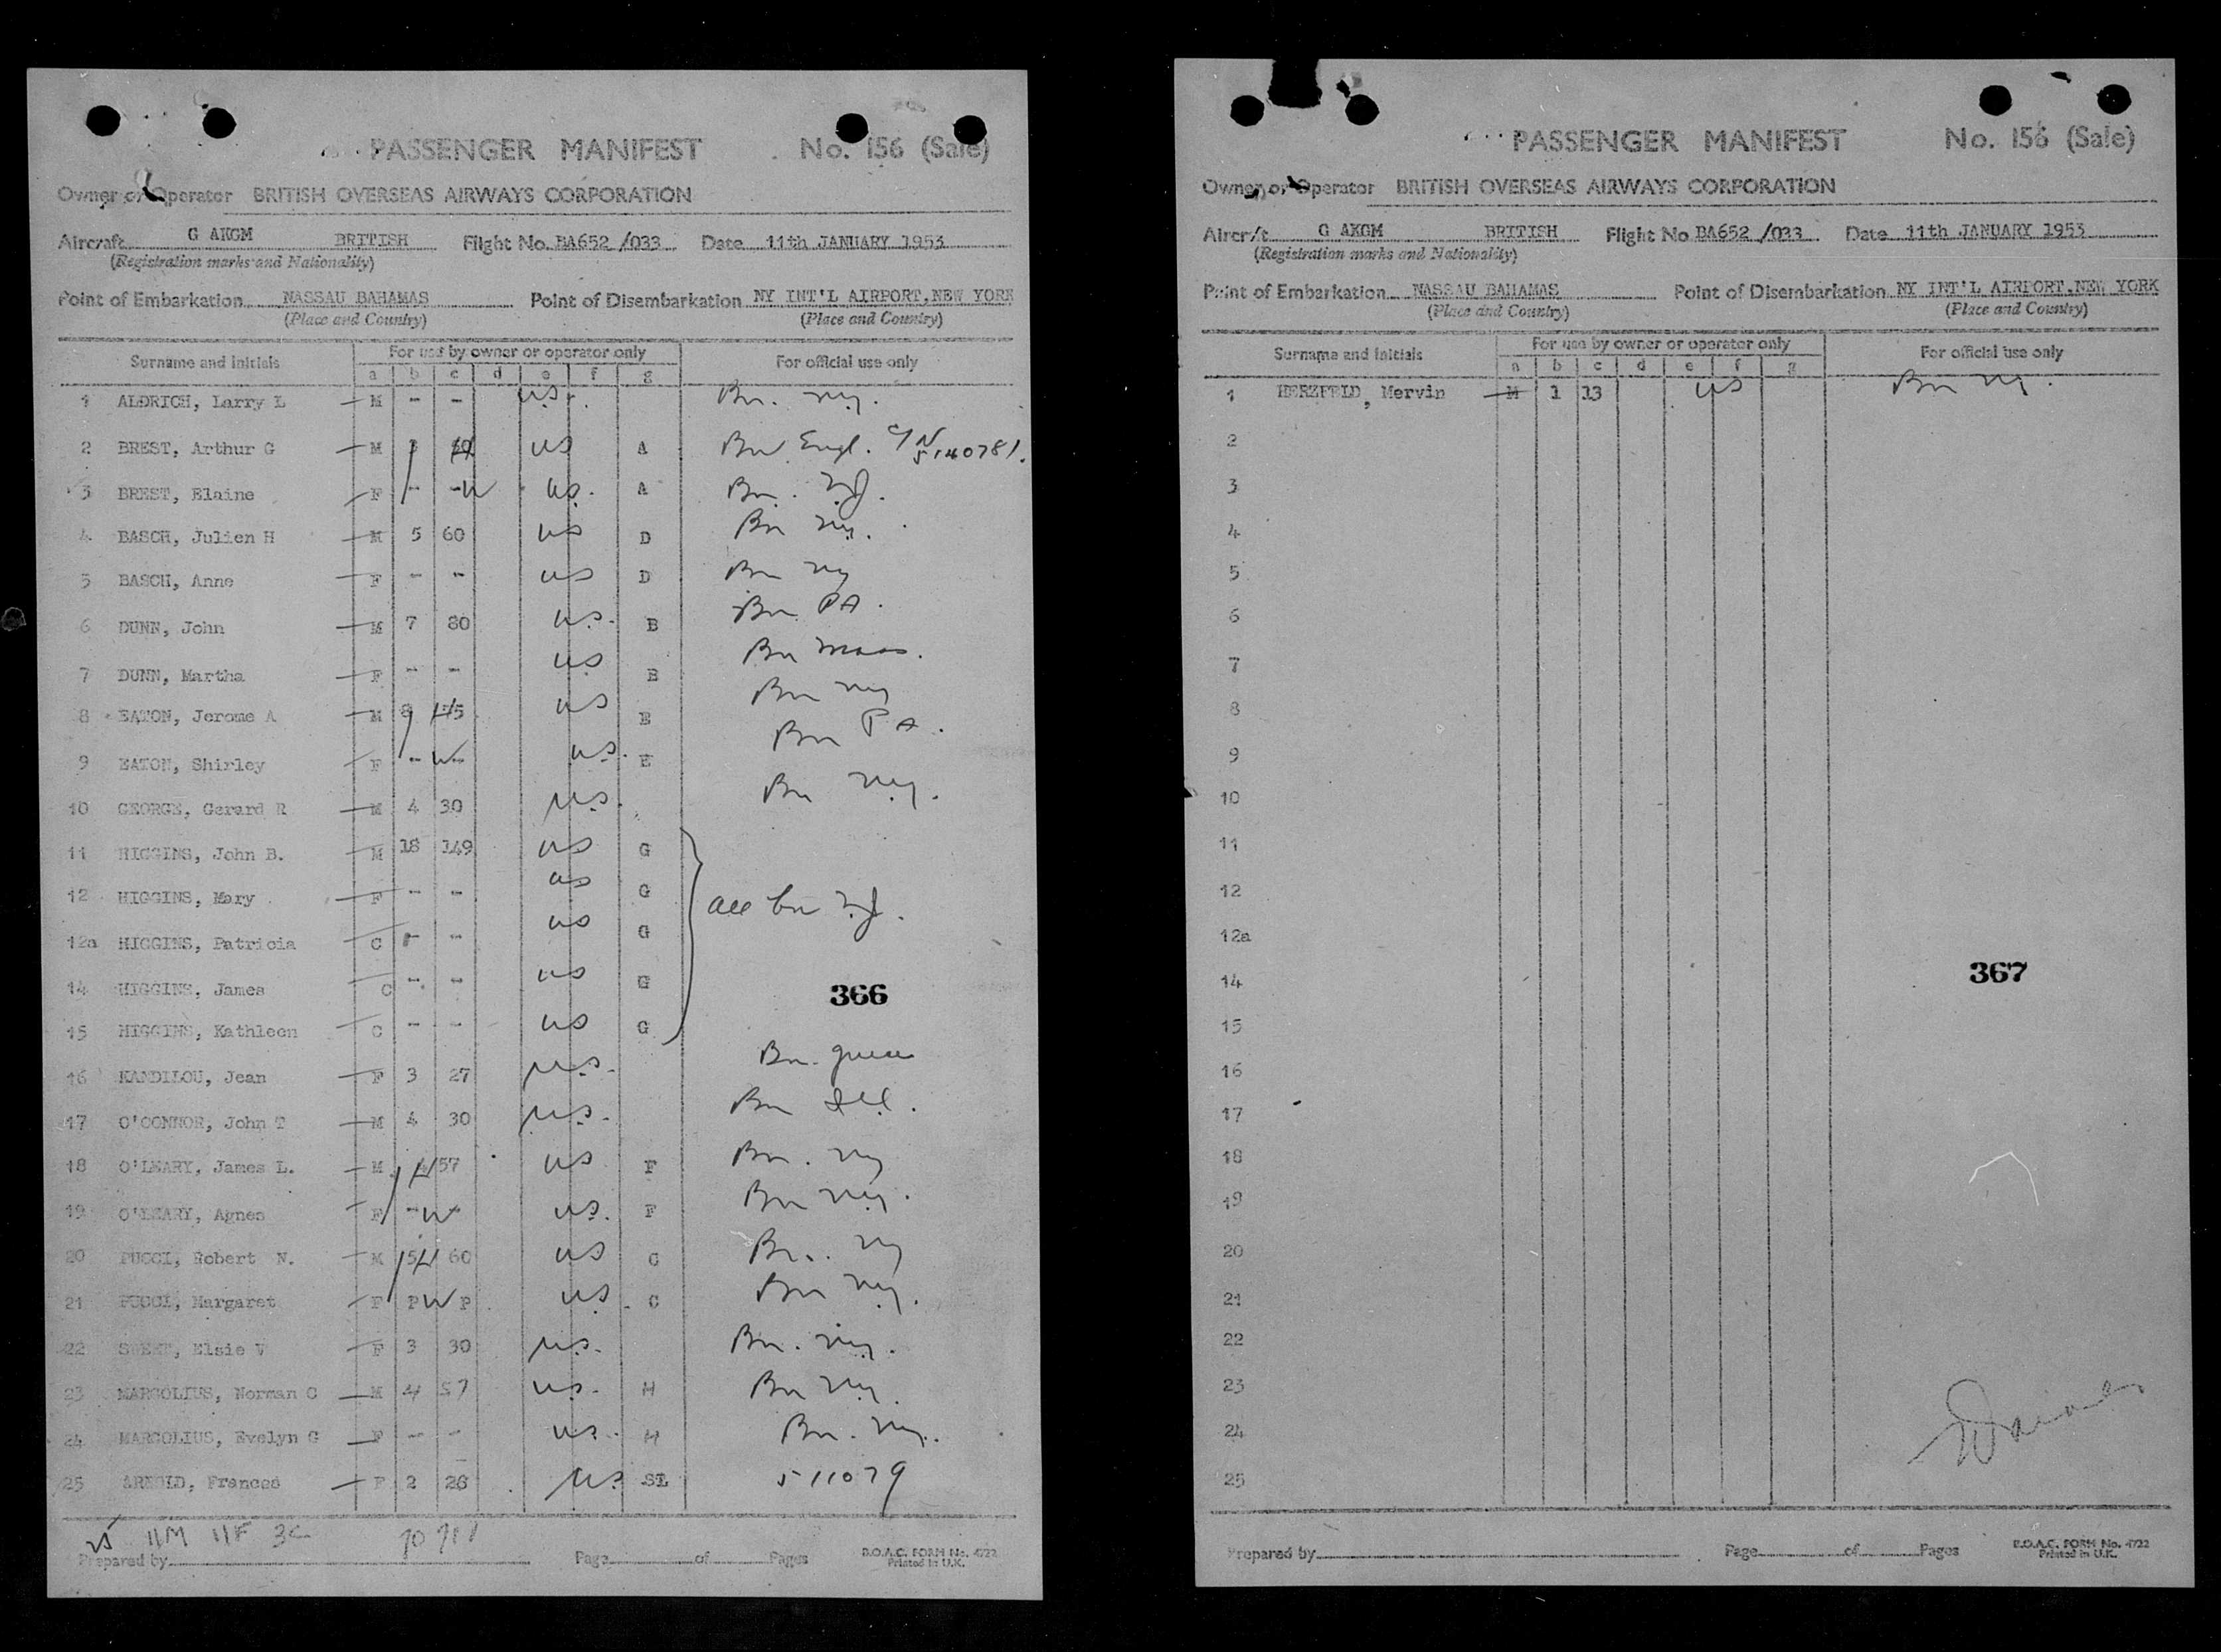 PASSENGER MANIFEST No. 156 (Sale)
Owner or Operator BRITISH OVERSEAS AIRWAYS CORPORATION
Aircraft G AKGM BRITISH Flight No. BA652 /033 Date 11th JANUARY 1953
(Registration marks and Nationality)
Point of Embarkation NASSAU BAHAMAS Point of Disembarkation NY INT'L AIRPORT, NEW YORK
(Place and Country) (Place and Country)
Surname and initials For use by owner or operator only For official use only
a b c d e f g
1 ALDRICH, Larry L M - - US. Bn. NY.
2 BREST, Arthur G M 3 US A Bn Engl. C/N 5140781.
3 BREST, Elaine F - - W US. A Bn. NJ.
4 BASCH, Julien H M 5 60 US D Bn NY.
5 BASCH, Anne F - - US D Bn NY
6 DUNN, John M 7 80 U.S. B Bn PA.
7 DUNN, Martha F - - US B Bn Mass.
8 EATON, Jerome A M 8 H 75 US E Bn NY
9 EATON, Shirley F - W - U.S. E Bn PA.
10 GEORGE, Gerard R M 4 30 U.S. Bn NY.
11 HIGGINS, John B. M 18 149 US G
12 HIGGINS, Mary F - - US G All bn N.J.
12a HIGGINS, Patricia C - - US G
14 HIGGINS, James C - - US G
366
15 HIGGINS, Kathleen C - - US G
16 KANDILOU, Jean F 3 27 U.S. Bn.
17 O'CONNOR, John T M 4 30 U.S. Bn Ill.
18 O'LEARY, James L. M H 57 US F Bn. NY
19 O'LEARY, Agnes F - W - U.S. F Bn NY.
20 PUCCI, Robert N. M 5 H 60 US C Bn. NY
21 PUCCI, Margaret F P W P US. C Bn NY.
22 Elsie V F 3 30 U.S. Bn. NY.
23 MARGOLIUS, Norman C M 4 57 U.S. H Bn NY.
24 MARGOLIUS, Evelyn G F - - U.S. H Bn. NY.
25 ARNOLD, Frances F 2 28 U.S. SL 511079
25 11M 11F 3C
Prepared by Page of Pages B.O.A.C. FORM No. 4722
Printed in U.K.
PASSENGER MANIFEST No. 156 (Sale)
Owner or Operator BRITISH OVERSEAS AIRWAYS CORPORATION
Aircraft G AKGM BRITISH Flight No BA652 /033 Date 11th JANUARY 1953
(Registration marks and Nationality)
Point of Embarkation NASSAU BAHAMAS Point of Disembarkation NY INT'L AIRPORT, NEW YORK
(Place and Country) (Place and Country)
Surname and initials For use by owner or operator only For official use only
a b c d e f g
1 HERZFELD, Mervin M 1 13 US Bn NY.
2
3
4
5
6
7
8
9
10
11
12
12a
367
14
15
16
17
18
19
20
21
22
23
24
25
Prepared by Page of Pages B.O.A.C. FORM No. 4722
Printed in U.K.